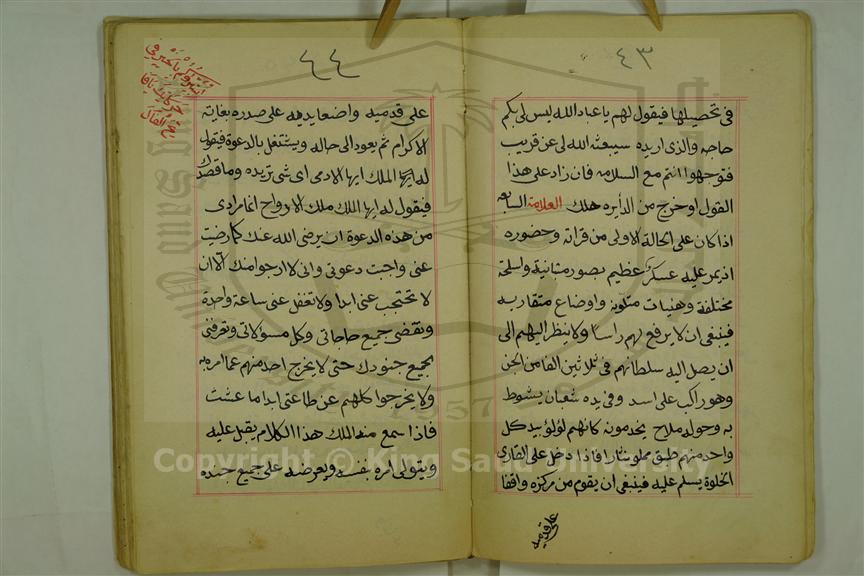 ٤٣
فى تحصيلها فيقول لهم ياعباد الله ليس لى بكم
حاجه والذى اريده سيبعثه الله لى عن قريب
فتوجهوا انتم مع السلامه فان زاد على هذا
القول او خرج من الدايره هلك العلامة السابعه
اذا كان على الحالة الاولى من قراته وحضوره
اذ يمر عليه عسكر عظيم بصور متباينة واسلحة
مختلفة وهنيات متلونه واوضاع متقاربه
فينبغى ان لا يرفع لهم راسا ولا ينظر اليهم الى
ان يصل اليه سلطانهم فى ثلاثين الفا من الجن
وهو راكب على اسد وفى يده ثعبان يشوط
به وحوله ملاح يخدمون كانهم لؤلؤ بيد كل
واحد منهم طبق مملو نثارا فاذا دخل على القارى
الخلوة يسلم عليه فينبغى ان يقوم من مركزه واقفا
على قدميه
٤٤
على قدميه واضعا يديه على صدره بغاية
الاكرام ثم يعود الى حاله ويشتغل بالدعوة فيقول
له ايها الملك ايها الادمى اى شى تريده وما قصدك
فيقول له ايها الملك ملك الارواح انما مرادى
من هذه الدعوة ان يرضى الله عنك كما رضيت
عنى واجبت دعوتى وانى لا ارجو امنك الا ان
لا تحتجب عنى ابدا ولا تغفل عنى ساعة واحدة
وتقضى جميع حاجاتى وكل مسؤلاتى وتعرفنى
بجميع جنودك حتى لا يخرج احد منهم عما امره به
ولا يخرجوا كلهم عن طاعتى ابدا ما عشت
فاذا سمع منه الملك هذا الكلام يقبل عليه
ويتولى امره بنفسه ويعرضه على جميع جنده
Copyright © King Saud University
1957